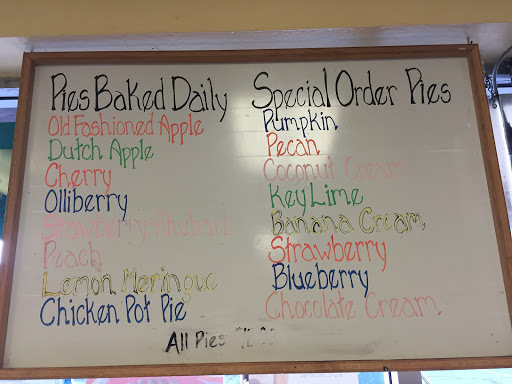 Pies Baked Daily
Old Fashioned Apple
Dutch Apple
Cherry
Olliberry
Strawberry-Rhubarb
Peach
Lemon Meringue
Chicken Pot Pie
Special Order Pies
Pumpkin
Pecan
Coconut Cream
Key Lime
Banana Cream
Strawberry
Blueberry
Chocolate Cream
All Pies